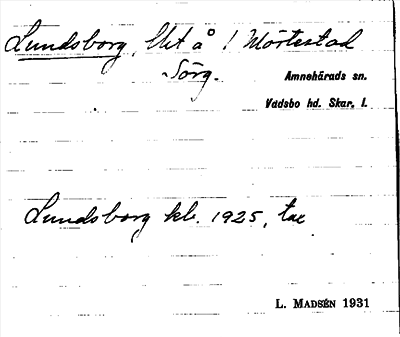 Lundsborg, Ut å 1 Mörtestad
Sörg.
Amnehärads sn.
Vadsbo hd. Skar. l.
Lundsborg kb. 1925, tax
L. MADSÉN 1931